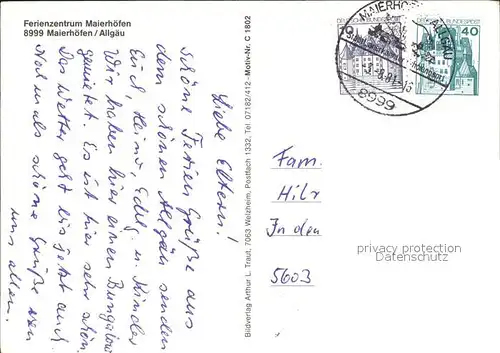 Ferienzentrum Maierhöfen
8999 Maierhöfen / Allgäu
Liebe Eltern!
Schöne Ferien Grüße aus
dem schönen Allgäu senden
Euch, Heinz, Edelg. u. Kinder
Wir haben hier einen Bungalow
gemietet. Es ist hier sehr schön.
Das Wetter geht bis jetzt auch.
Nochmals schöne Grüße von
uns allen.
Bildverlag Arthur L. Traut, 7063 Welzheim, Postfach 1332, Tel. 07182/412 - Motiv-Nr. C 1802
DEUTSCHE BUNDESPOST
40
MAIERHÖFEN ALLGÄU
8999
Fam.
Hilr
In den
5603
privacy protection
Datenschutz